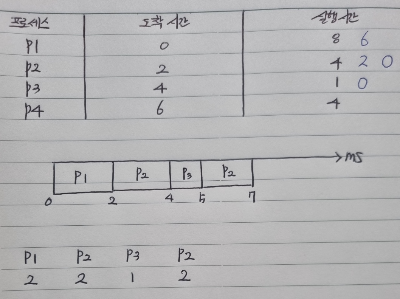 프로세스 도착 시간 실행시간
P1 0 8 6
P2 2 4 2 0
P3 4 1 0
P4 6 4
P1 P2 P3 P2 ms
0 2 4 5 7
P1 P2 P3 P2
2 2 1 2